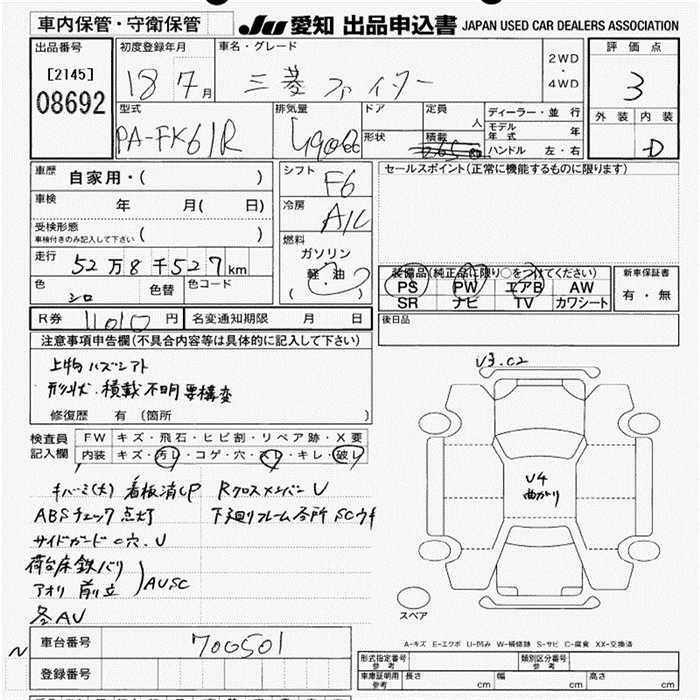 車内保管・守衛保管
JU 愛知 出品申込書 JAPAN USED CAR DEALERS ASSOCIATION
出品番号
[2145]
08692
初度登録年月
18 7月
車名・グレード
三菱 ファイター
2WD
・
4WD
評価点
3
外装 内装
D
型式
PA-FK61R
排気量
4900cc
ドア
形状
定員
人
積載
2650
ディーラー・並行
モデル年式 年
ハンドル 左・右
車歴
自家用・( )
車検
年 月( 日)
受検形態
車検付きのみ記入して下さい ( )
走行
52万8千527km
色
シロ
色替
色コード
シフト
F6
冷房
A/C
燃料
ガソリン
・
軽・油
( )
セールスポイント(正常に機能するものに限ります)
装備品(純正品に限り○をつけてください)
PS PW エアB AW
SR ナビ TV カワシート
新車保証書
有・無
R券 11010円
名変通知期限 月 日
後日品
注意事項申告欄(不具合内容等は具体的に記入して下さい)
上物ハズシアト
形状・積載不明要構変
修復歴 有 (箇所 )
検査員
記入欄
FW キズ・飛石・ヒビ割・リペア跡・X要
内装 キズ・汚レ・コゲ・穴・スレ・キレ・破レ
キバミ(大) 看板消UP RクロスメンバーU
ABSチェック点灯 下廻りフレーム各所SCサ
サイドガードC穴.U
荷台床鉄バリ
アオリ 前立 )AUSC
各AU
U3.C2
U4
曲がり
スペア
A-キズ E-エクボ U-凹み W-補修跡 S-サビ C-腐食 XX-交換済
N
車台番号
700501
登録番号
形式指定番号
参考
類別区分番号
参考
車庫証明用
参考
長さ cm 幅 cm 高さ cm